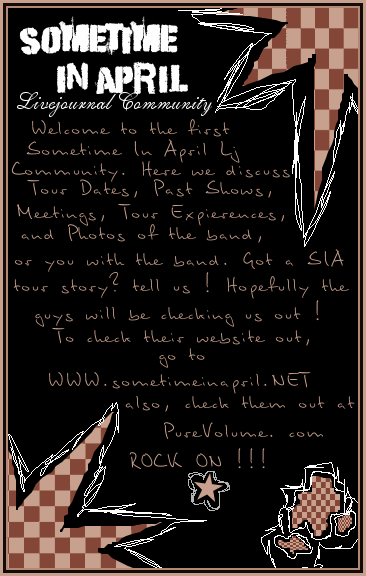 SOMETIME
IN APRIL
Livejournal Community
Welcome to the first
Sometime In April Lj
Community. Here we discuss
Tour Dates, Past Shows,
Meetings, Tour Expierences,
and Photos of the band,
or you with the band. Got a SIA
tour story? tell us ! Hopefully the
guys will be checking us out !
To check their website out,
go to
WWW.sometimeinapril.NET
also, check them out at
PureVolume. com
ROCK ON !!!